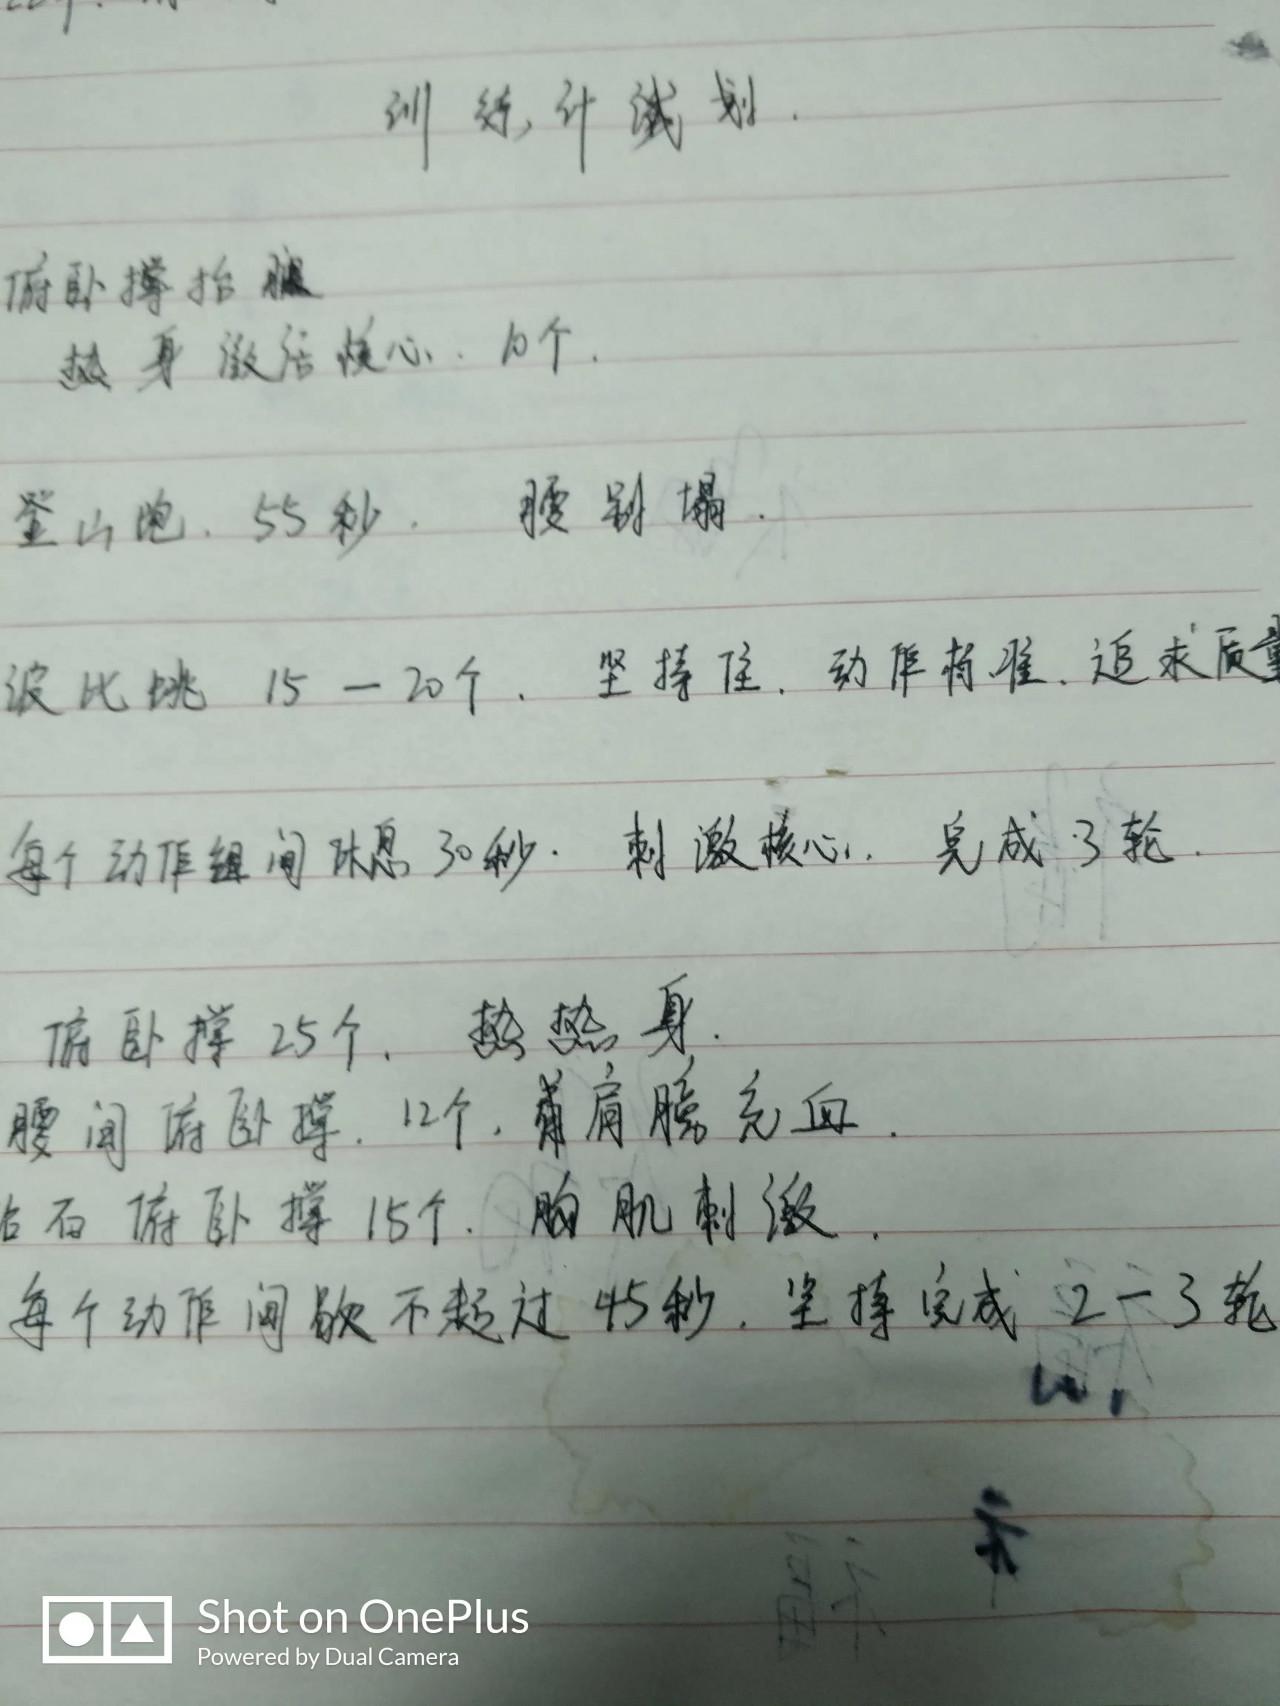 训练计划.
俯卧撑抬腿
热身激活核心. 10个.
登山跑. 55秒. 腰别塌.
波比跳 15-20个. 坚持住. 动作标准. 追求质量
每个动作组间休息30秒. 刺激核心. 完成3轮.
俯卧撑25个. 热热身.
腰间俯卧撑. 12个. 肩膀充血.
俯卧撑15个. 胸肌刺激.
每个动作间歇不超过45秒. 坚持完成2-3轮
Shot on OnePlus
Powered by Dual Camera